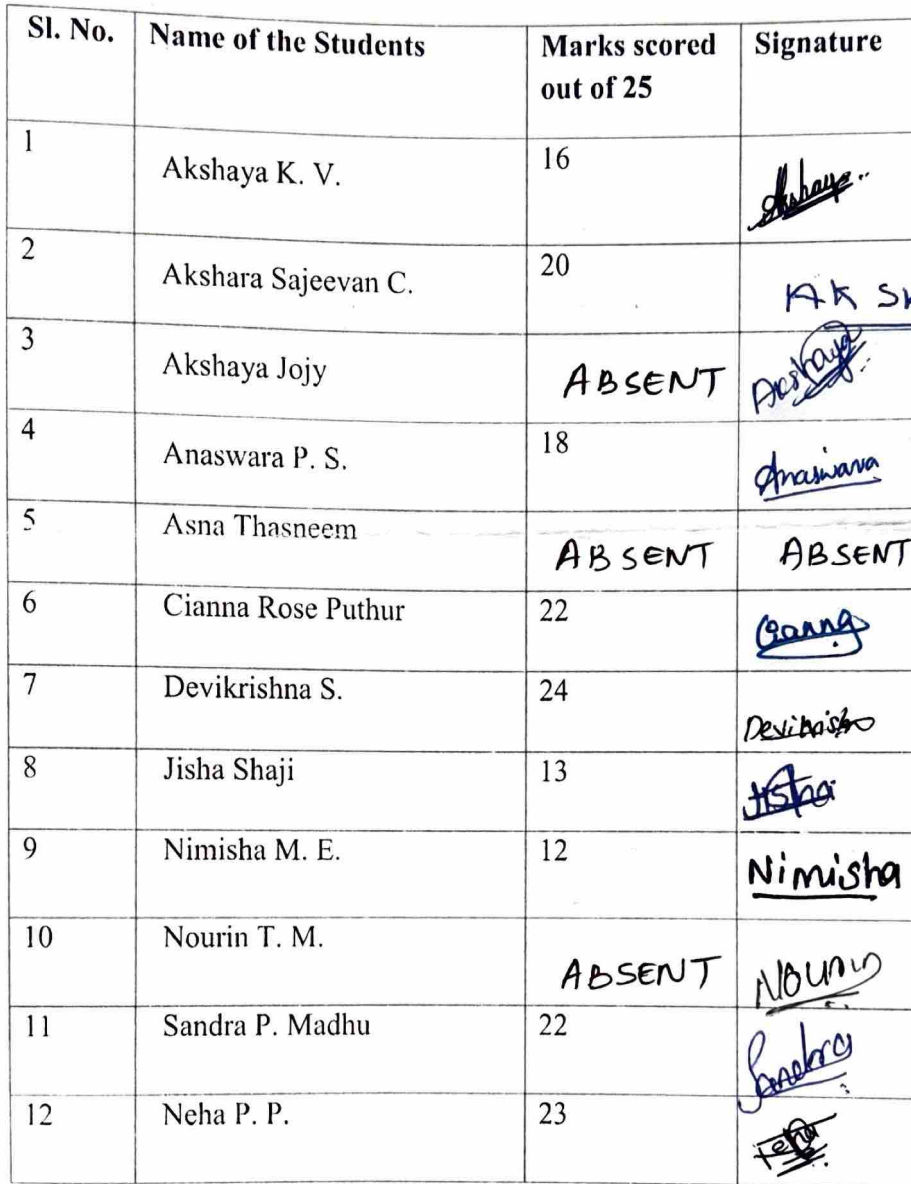 Sl. No. Name of the Students Marks scored out of 25 Signature
1 Akshaya K. V. 16 Akshaya
2 Akshara Sajeevan C. 20 AK SH
3 Akshaya Jojy ABSENT Akshaya
4 Anaswara P. S. 18 Anaswara
5 Asna Thasneem ABSENT ABSENT
6 Cianna Rose Puthur 22 Cianna
7 Devikrishna S. 24
8 Jisha Shaji 13 Jisha
9 Nimisha M. E. 12 Nimisha
10 Nourin T. M. ABSENT Nourin
11 Sandra P. Madhu 22 Sandra
12 Neha P. P. 23